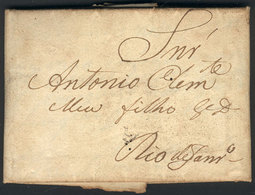 Snr
Antonio Clemte
Meu filho G D
Rio de Janro